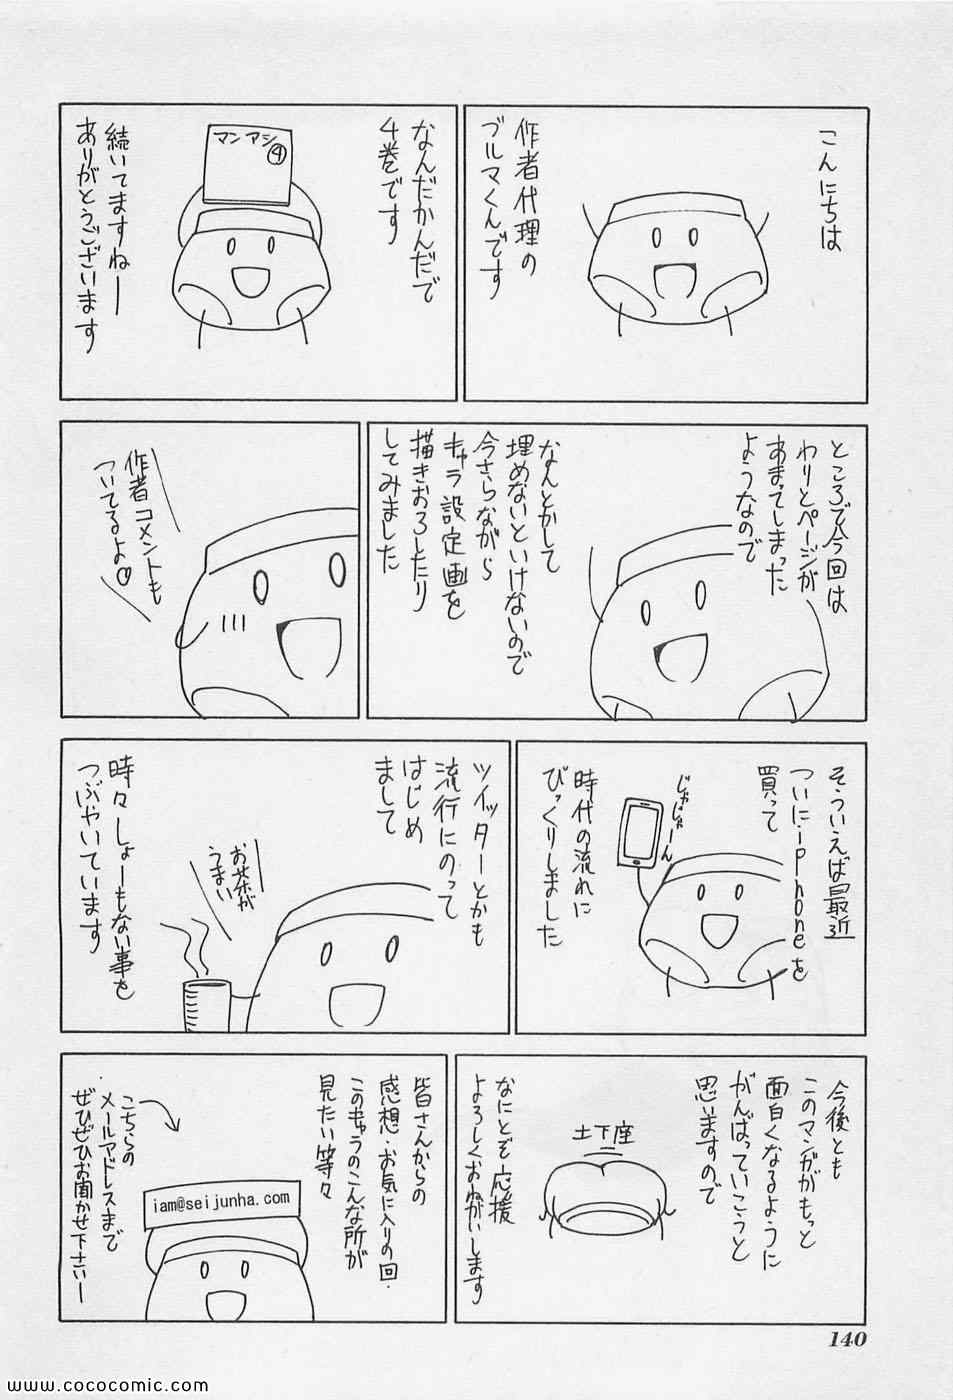 こんにちは
作者代理の
ブルマくんです
なんだかんだで
4巻です
マンアシ
④
続いてますねー
ありがとうございます
ところで今回は
わりとページが
あまってしまった
ようなので
なんとかして
埋めないといけないので
今さらながら
キャラ設定画を
描きおろしたり
してみました
作者コメントも
ついてるよ♡
そういえば最近
ついにiphoneを
買って
じゃじゃーん
時代の流れに
びっくりしました
ツイッターとかも
流行にのって
はじめ
まして
お茶が
うまい
時々しょーもない事を
つぶやいています
今後とも
このマンガがもっと
面白くなるように
がんばっていこうと
思いますので
土下座
なにとぞ応援
よろしくおねがいします
皆さんからの
感想・お気に入りの回・
このキャラのこんな所が
見たい等々
こちらの
メールアドレスまで
ぜひぜひお聞かせ下さいー
iam@seijunha.com
140
www.cococomic.com